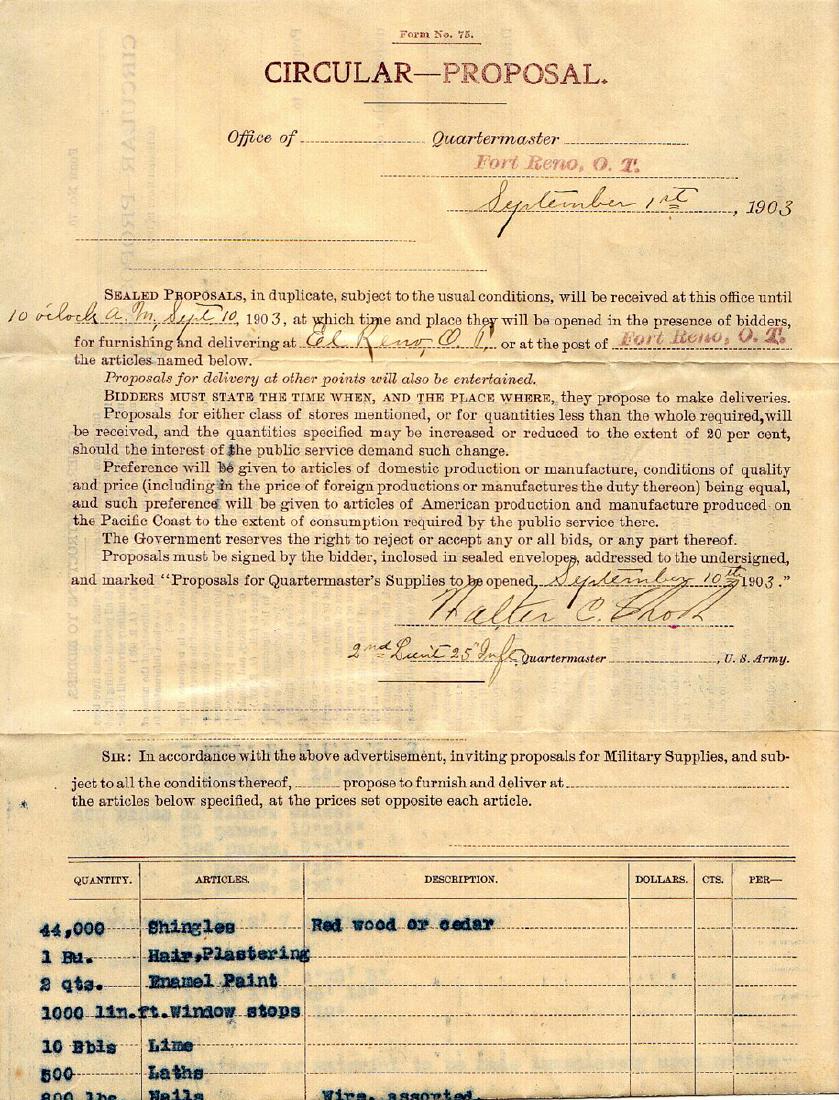 Form No. 75.
CIRCULAR—PROPOSAL.
Office of Quartermaster
Fort Reno, O. T.
September 1st, 1903
SEALED PROPOSALS, in duplicate, subject to the usual conditions, will be received at this office until
10 o'clock a. m, Sept 10, 1903, at which time and place they will be opened in the presence of bidders,
for furnishing and delivering at El Reno, O. T. or at the post of Fort Reno, O. T.
the articles named below.
Proposals for delivery at other points will also be entertained.
BIDDERS MUST STATE THE TIME WHEN, AND THE PLACE WHERE, they propose to make deliveries.
Proposals for either class of stores mentioned, or for quantities less than the whole required, will
be received, and the quantities specified may be increased or reduced to the extent of 20 per cent,
should the interest of the public service demand such change.
Preference will be given to articles of domestic production or manufacture, conditions of quality
and price (including in the price of foreign productions or manufactures the duty thereon) being equal,
and such preference will be given to articles of American production and manufacture produced on
the Pacific Coast to the extent of consumption required by the public service there.
The Government reserves the right to reject or accept any or all bids, or any part thereof.
Proposals must be signed by the bidder, inclosed in sealed envelopes, addressed to the undersigned,
and marked "Proposals for Quartermaster's Supplies to be opened September 10th 1903."
Walter C.
2nd Lieut 25" Inf. Quartermaster, U. S. Army.
SIR: In accordance with the above advertisement, inviting proposals for Military Supplies, and sub-
ject to all the conditions thereof, propose to furnish and deliver at
the articles below specified, at the prices set opposite each article.
QUANTITY. ARTICLES. DESCRIPTION. DOLLARS. CTS. PER—
44,000 Shingles Red wood or cedar
1 Bu. Hair, Plastering
2 qts. Enamel Paint
1000 lin.ft. Window stops
10 Bbls Lime
500 Laths
800 lbs Nails Wire, assorted.